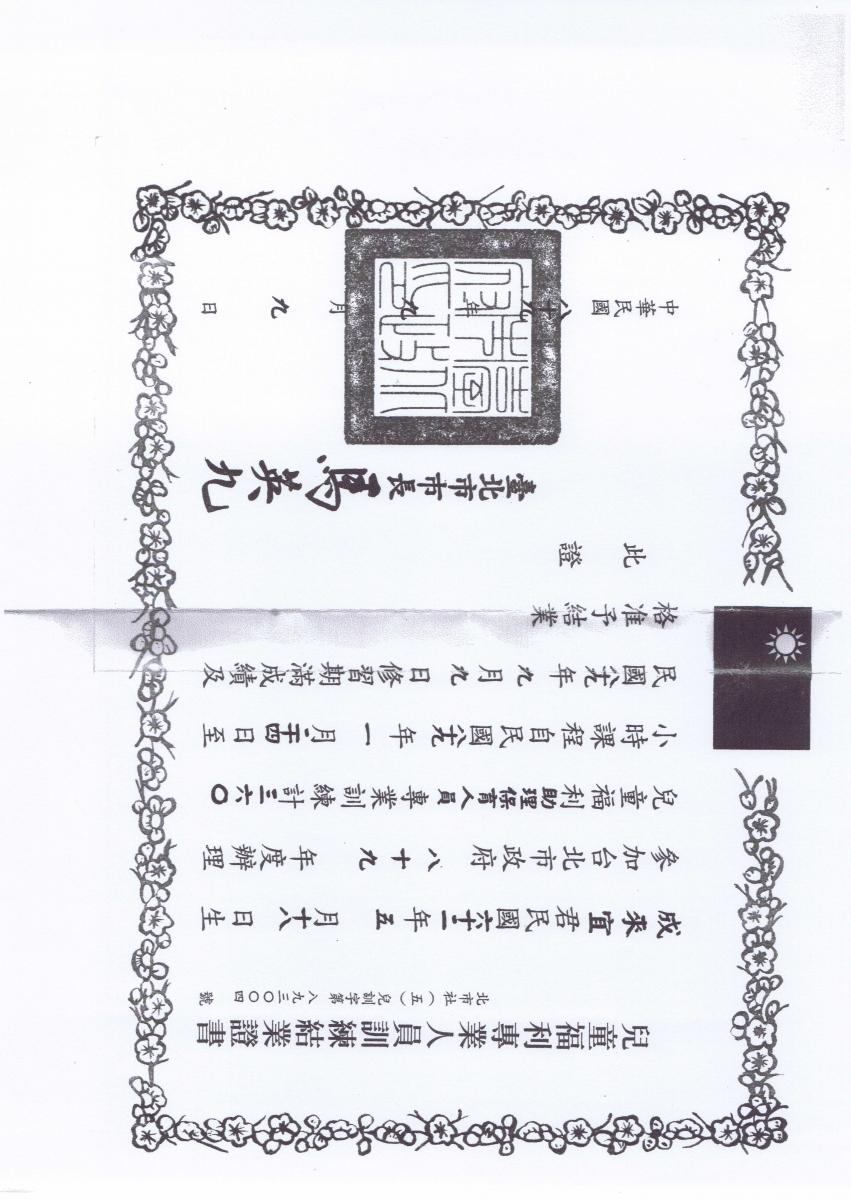 兒童福利專業人員訓練結業證書
北市社（五）兒訓字第八九三〇〇四號
成來宜君民國六十一年五月十八日生
參加台北市政府八十九年度辦理
兒童福利助理保育人員專業訓練計三六〇
小時課程自民國八十九年一月二十四日至
民國八十九年九月九日修習期滿成績及
格准予結業
此證
臺北市市長馬英九
中華民國八十九年九月九日